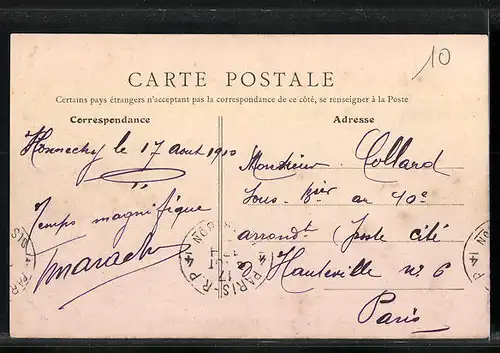 10
CARTE POSTALE
Certains pays étrangers n'acceptant pas la correspondance de ce côté, se renseigner à la Poste
Correspondance
Adresse
Honnechy le 17 Aout 1910
Temps magnifique
Monsieur Collard
Sous-Brier au 10e
arrondt (poste cité
d'Hauteville n° 6
Paris
PARIS-R.P